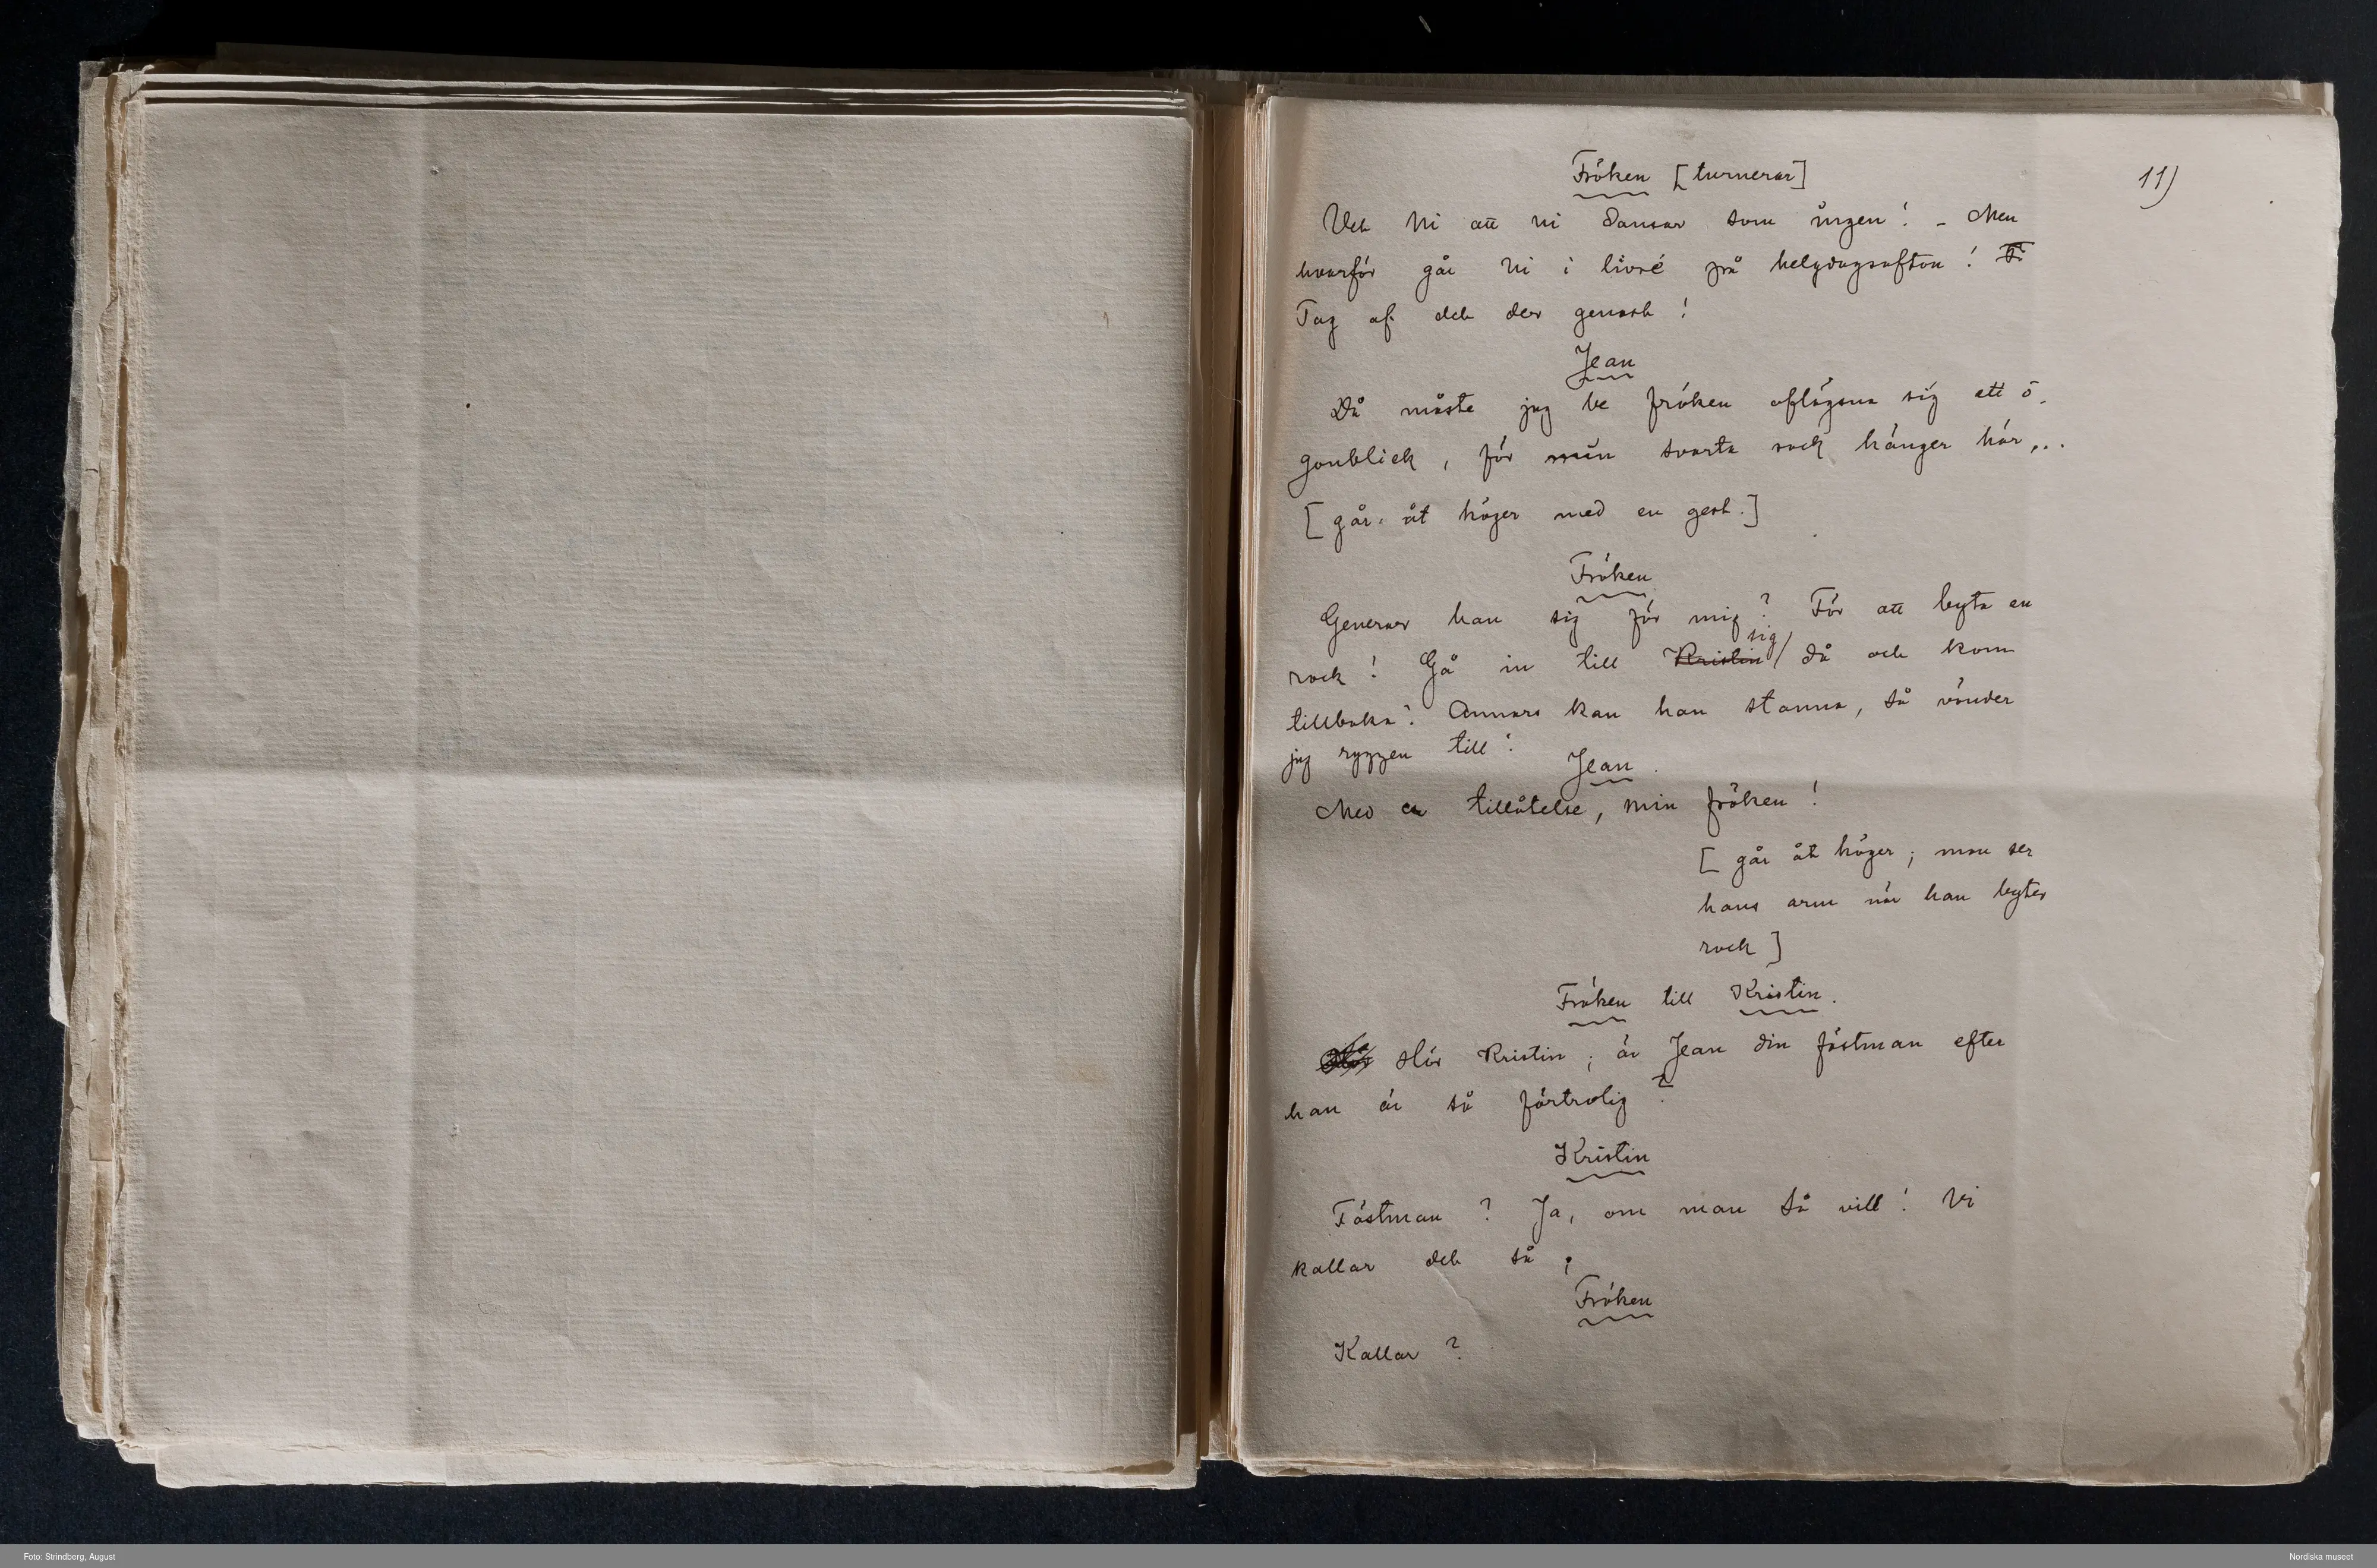 11)
Fröken [turnerar]
Vet Ni att ni dansar som ingen! – Men
hvarför går Ni i livré på helgdagsafton!
Tag af det der genast!
Jean
Då måste jag be fröken aflägsna sig ett ö-
gonblick, för min svarta rock hänger här...
[går åt höger med en gest.]
Fröken
Generar han sig för mig? För att byta en
rock! Gå in till Kristin sig då och kom
tillbaka! Annars kan han stanna, så vänder
jag ryggen till!
Jean.
Med er tillåtelse, min fröken!
[går åt höger; man ser
hans arm när han byter
rock]
Fröken till Kristin.
Hör Kristin; är Jean din fästman efter
han är så förtrolig?
Kristin
Fästman? Ja, om man så vill! Vi
kallar det så;
Fröken
Kallar?
Foto: Strindberg, August
Nordiska museet